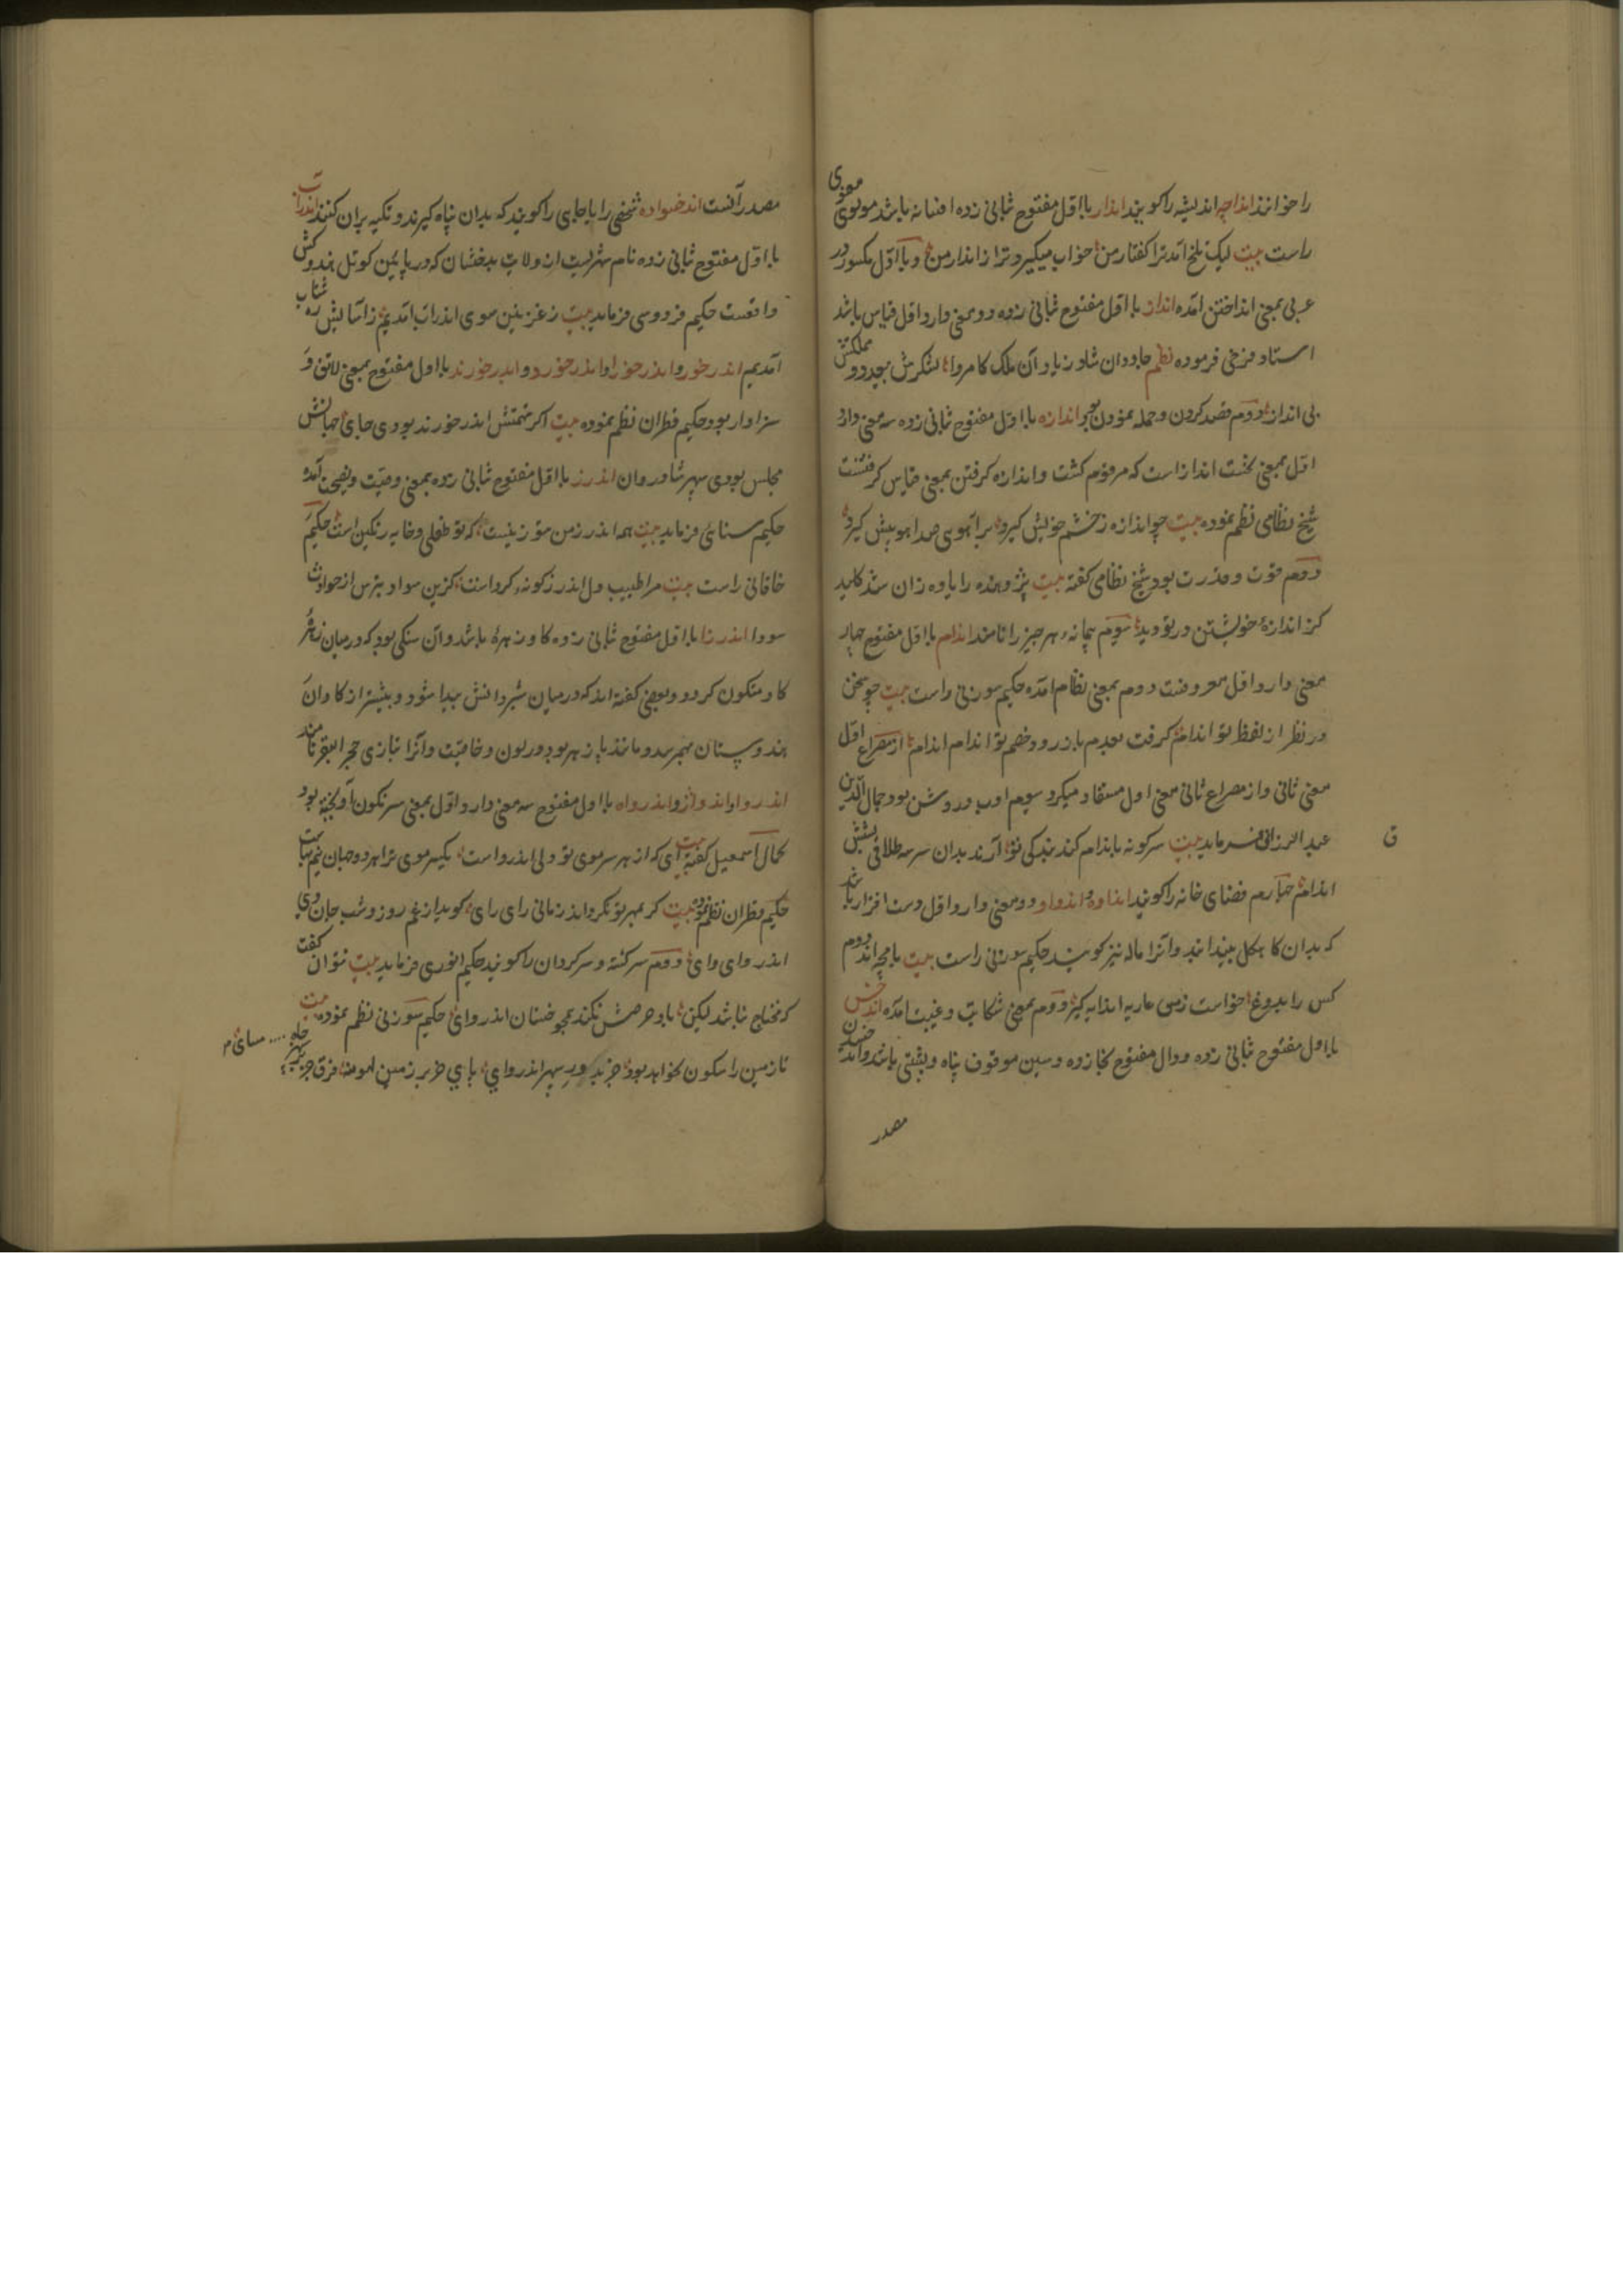 را خوانند انداجه اندیشه را گویند اندار با اول مفتوح ثبانی زده افسانه باشد مولوی معنوی
راست بیت لیک تلخ آمد ترا کفتار من خواب میکیرد ترا ز اندار من و با اول مکسور در
عربی بمعنی انداختن آمده انداز با اول مفتوح ثبانی زده دو معنی دارد اول قیاس باشد
استاد فرخی فرموده نظم جاودان شاد زیاد آن ملک کامروا لشکرش بیحد و مملکتش
بی انداز دوم قصد کردن و حمله نمودن بود اندازه با اول مفتوح ثبانی زده سه معنی دارد
اول بمعنی نخست انداز است که مرقوم کشت و اندازه کرفتن بمعنی قیاس کرفتنست
شیخ نظامی نظم نموده بیت چو اندازه ز چشم خویش کیرد بر آهویی صد آهو بیش کیرد
دوم قوت و قدرت بود شیخ نظامی کفته بیت پژوهنده را یاوه زان شد کلید
کز اندازهٔ خویشتن در تو دید سوم پیمانه هر چیز را نامند اندام با اول مفتوح چهار
معنی دارد اول معروفست دوم بمعنی نظام آمده حکیم سوزنی راست بیت چو سخن
در نظر از لفظ تو اندام کرفت بعدم باز رود خصم تو اندام اندام از مصراع اول
معنی ثانی و از مصراع ثانی معنی اول مستفاد میکردد سوم ادب و روشن بود جمال الدین
عبد الرزاق فرماید بیت سرکونه باندام کند بندکی تو آرند بدان سر سه طلاقی بسش
اندام چهارم فضای خانه را گویند انداوه و انداو دو معنی دارد اول دست افزار باشد
که بدان کاهکل بیندایند و آنرا ماله نیز کویند حکیم سوزنی راست بیت
کس را بدروغ دوم بمعنی شکایت و غیبت آمده اندخس
با اول مفتوح ثبانی زده و دال مفتوح بخا زده و سین موقوف پناه و پشتی باشد و اندخسیدن
مصدر
ق
مصدر آنست اندخسواده شخصی را یا جایی را گویند که بدان پناه کیرند و تکیه بران کنند اندراب
با اول مفتوح ثبانی زده نام شهریست از ولایت بدخشان که در پایین کوتل هندوکش
واقعست حکیم فردوسی فرماید بیت ز غزنین سوی اندراب آمدیم ز آسایش ره شتاب
آمدیم اندرخور و اندرخورا و اندرخورد و اندرخورند با اول مفتوح بمعنی لایق و
سزاوار بود حکیم قطران نظم نموده بیت اکر همتش اندرخورند بودی جای جهانش
مجلس بودی سپهر شادروان اندرز با اول مفتوح ثبانی زده بمعنی وصیت و نصیحت آمده
حکیم سنائی فرماید بیت همه اندرز من بتو اینست که تو طفلی و خانه رنکین است حکیم
خاقانی راست بیت مرا طبیب دل اندرز کونه کرد است کزین سواد بترس از حوادث
سودا اندرزا با اول مفتوح ثبانی زده کاو زهره باشد و آن سنکی بود که در میان زهره
کاو متکون کردد و بعضی کفته اند که در میان شیردانش پیدا شود و بیشتر از کاوان
هندوستان بهم رسد و مانند پازهر بود در لون و خاصیت و آنرا بتازی حجر البقر نامند
اندروا و اندرواز و اندرواه با اول مفتوح سه معنی دارد اول بمعنی سرنکون آویخته بود
کمال اسمعیل کفته بیت ای که از هر سر موی تو دلی اندرواست یکسر موی ترا هر دو جهان نیم بهاست
حکیم قطران نظم نموده بیت کر بمهر تو نکردانذ زمانی رای رای کوید از غم روز و شب جان وی
اندروای وای دوم سرکشته و سرکردان را کویند حکیم انوری فرماید بیت نتوان کفت
که محتاج نباشد لیکن نکند همچو خسان اندروای حکیم سوزنی نظم نموده بیت
تا زمین را سکون نخواهد بود جز بدور سپهر اندروای